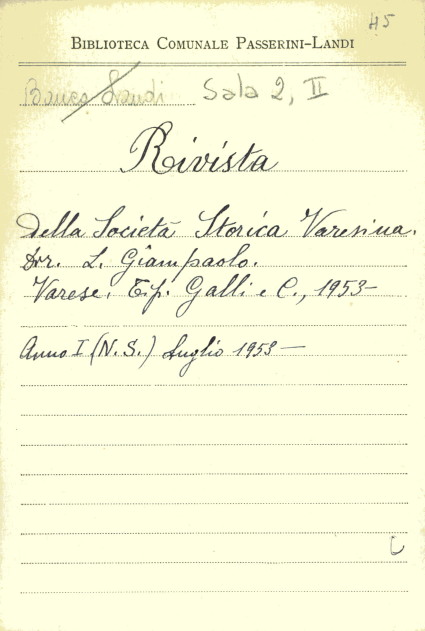 45
BIBLIOTECA COMUNALE PASSERINI-LANDI
Banco Landi Sala 2, II
Rivista
della Società Storica Varesina.
Dir. L. Giampaolo.
Varese. Tip. Galli e C., 1953-
Anno I (N. S.) Luglio 1953-